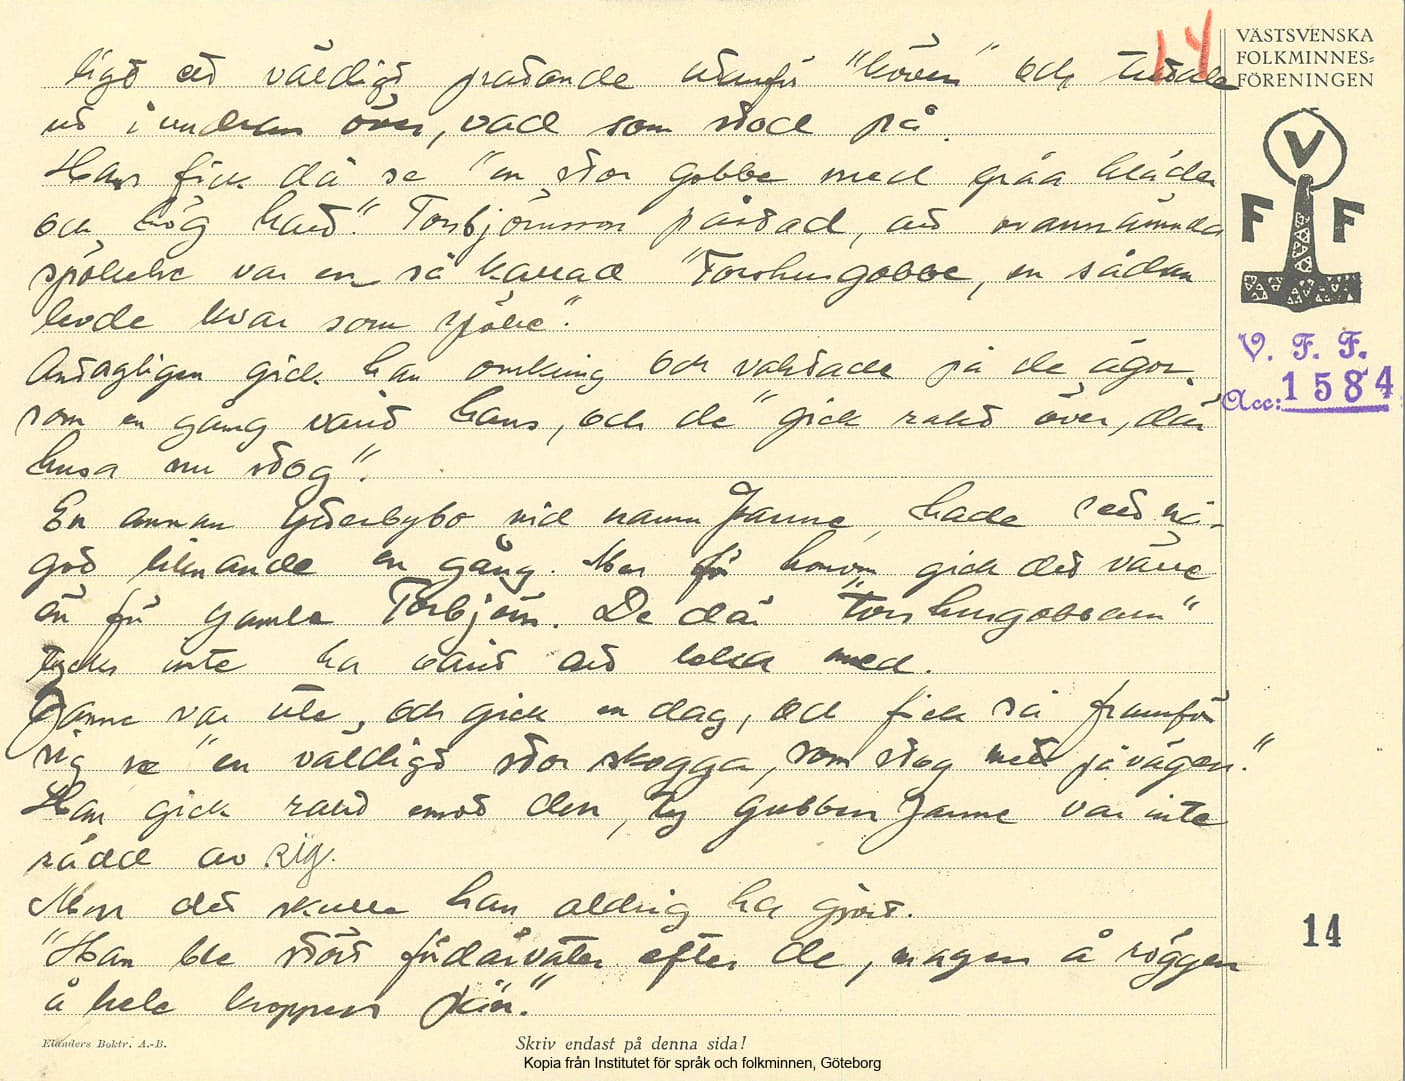 14
VÄSTSVENSKA
FOLKMINNES-
FÖRENINGEN
ligt ett väldigt pratande utanför "köven" och tittade
ut i undran över, vad som stod på.
Han fick då se "en stor gobbe med gråa kläder
och hög hatt". Torbjörnsson påstod, att ovannämnda
spökelse var en så kallad "Torshusgobbe, en sådan
levde kvar som spöke".
Antagligen gick han omkring och vaktade på de ägor
som en gång varit hans, och de "gick rakt över, där
husa nu stog".
En annan Ytterbybo vid namn Janne, hade sett nå-
got liknande en gång. Men för honom gick det värre
än för gamle Torbjörn. De där "torshusgobbarn"
tycks inte ha varit att leka med.
Janne var ute, och gick en dag, och fick så framför
sig se "en väldigt stor skogga, som stog mett på vägen."
Han gick rakt emot den, ty gubben Janne var inte
rädd av sig.
Men det skulle han aldrig ha gjort.
"Han ble stört fördärvater efter de, magen å röggen
å hele kroppen
V
F F
V. F. F.
Acc: 1584
14
Elanders Boktr. A.-B.
Skriv endast på denna sida!
Kopia från Institutet för språk och folkminnen, Göteborg